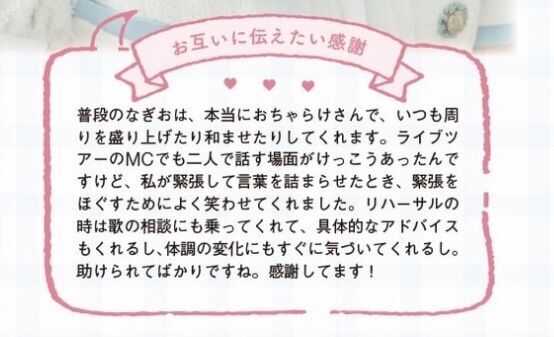 お互いに伝えたい感謝
普段のなぎおは、本当におちゃらけさんで、いつも周
りを盛り上げたり和ませたりしてくれます。ライブツ
アーのMCでも二人で話す場面がけっこうあったんで
すけど、私が緊張して言葉を詰まらせたとき、緊張を
ほぐすためによく笑わせてくれました。リハーサルの
時は歌の相談にも乗ってくれて、具体的なアドバイス
もくれるし、体調の変化にもすぐに気づいてくれるし。
助けられてばかりですね。感謝してます！